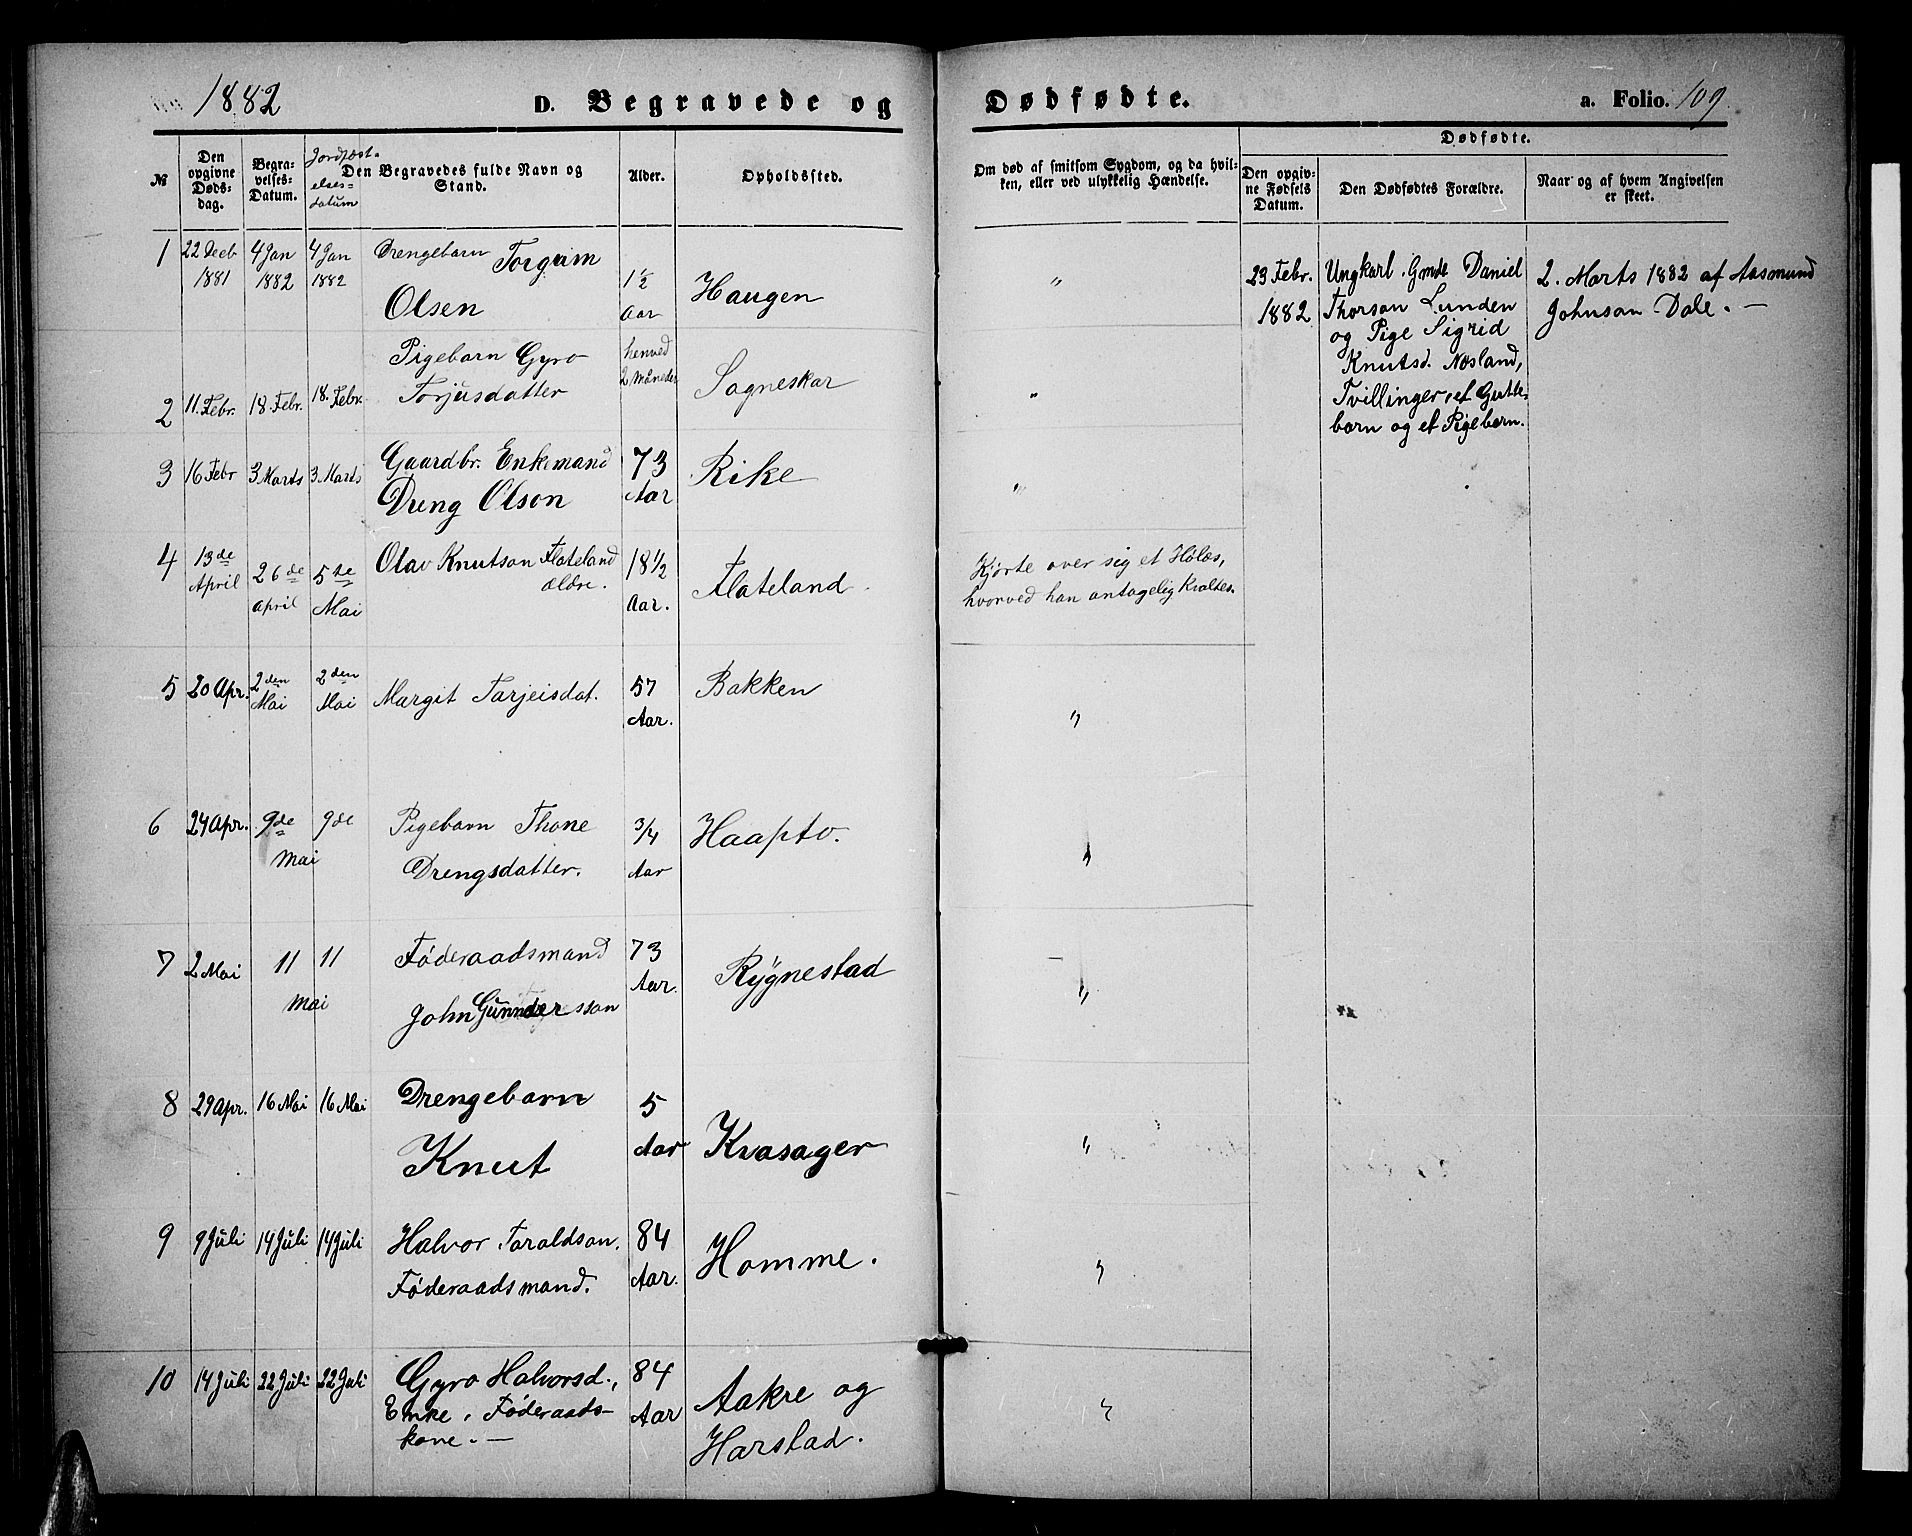 1882 D. Begravede og Dødfødte. a. Folio. 109.
№
Den opgivne Dødsdag.
Begravelses-Datum.
Jordfæstelsesdatum
Den Begravedes fulde Navn og Stand.
Alder.
Opholdssted.
Om død af smitsom Sygdom, og da hvilken, eller ved ulykkelig Hændelse.
Dødfødte.
Den opgivne Fødsels Datum.
Den Dødfødtes Forældre.
Naar og af hvem Angivelsen er skeet.
1 22 Decb 4 Jan 4 Jan Drengebarn Torgrim
1881 1882 1882 Olsen 1½ Aar Haugen "
2 11. Febr. 18. Febr. 18. Febr. Pigebarn Gyro henved
Torjusdatter 2 Måneder Sagneskar "
3 16 Febr 3 Marts 3 Marts Gaardbr. Enkemand 73
Dreng Olson Aar Rike "
4 13de 26de 5te Olav Knutson Flateland 18½
April April Mai ældre. Aar. Flateland.
Kjørte over sig et Hølæs,
hvorved han antagelig kvaltes.
5 20 Apr. 2den 2den Margit Tarjeisdat. 57 Bakken
Mai Mai Aar. "
6 24 Apr. 9de 9de Pigebarn Thone ¾ Haapto.
Mai Drengsdatter. Aar "
7 2 Mai 11 11 Føderaadsmand 73 Rygnestad
Mai John Gunnersson Aar. "
8 29 Apr. 16 Mai 16 Mai Drengebarn 5
Knut Aar Kvasager "
9 9 Juli 14 Juli 14 Juli Halvor Taraldson. 84 Homme.
Føderaadsmand. Aar. "
10 14 Juli 22 Juli 22 Juli Gyro Halvorsd., 84 Aakre og
Enke, Føderaads- Aar Harstad.
kone. — "
23 Febr.
1882
Ungkarl. Gmde Daniel
Thorson Lunden
og Pige Sigrid
Knutsd. Næsland,
Tvillinger, et Gutte-
barn og et Pigebarn.
2. Marts 1882 af Aasmund
Johnson Dale. —